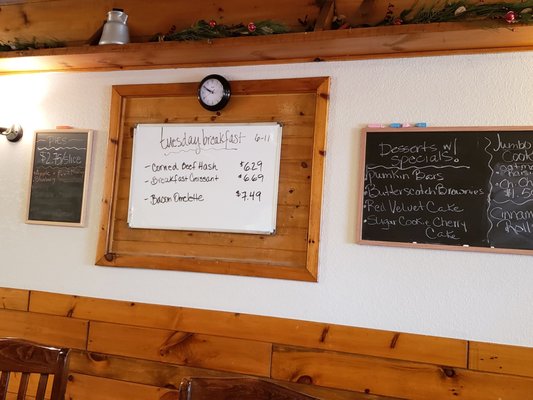 PIES
$2.75/Slice
Tuesday breakfast 6-11
-Corned Beef Hash $6.29
-Breakfast Croissant $6.69
-Bacon Omelette $7.49
Desserts w/
Specials.
Pumkin Bars
Butterscotch Brownies
Red Velvet Cake
Sugar Cookie Cherry
Cake
Jumbo
Cook